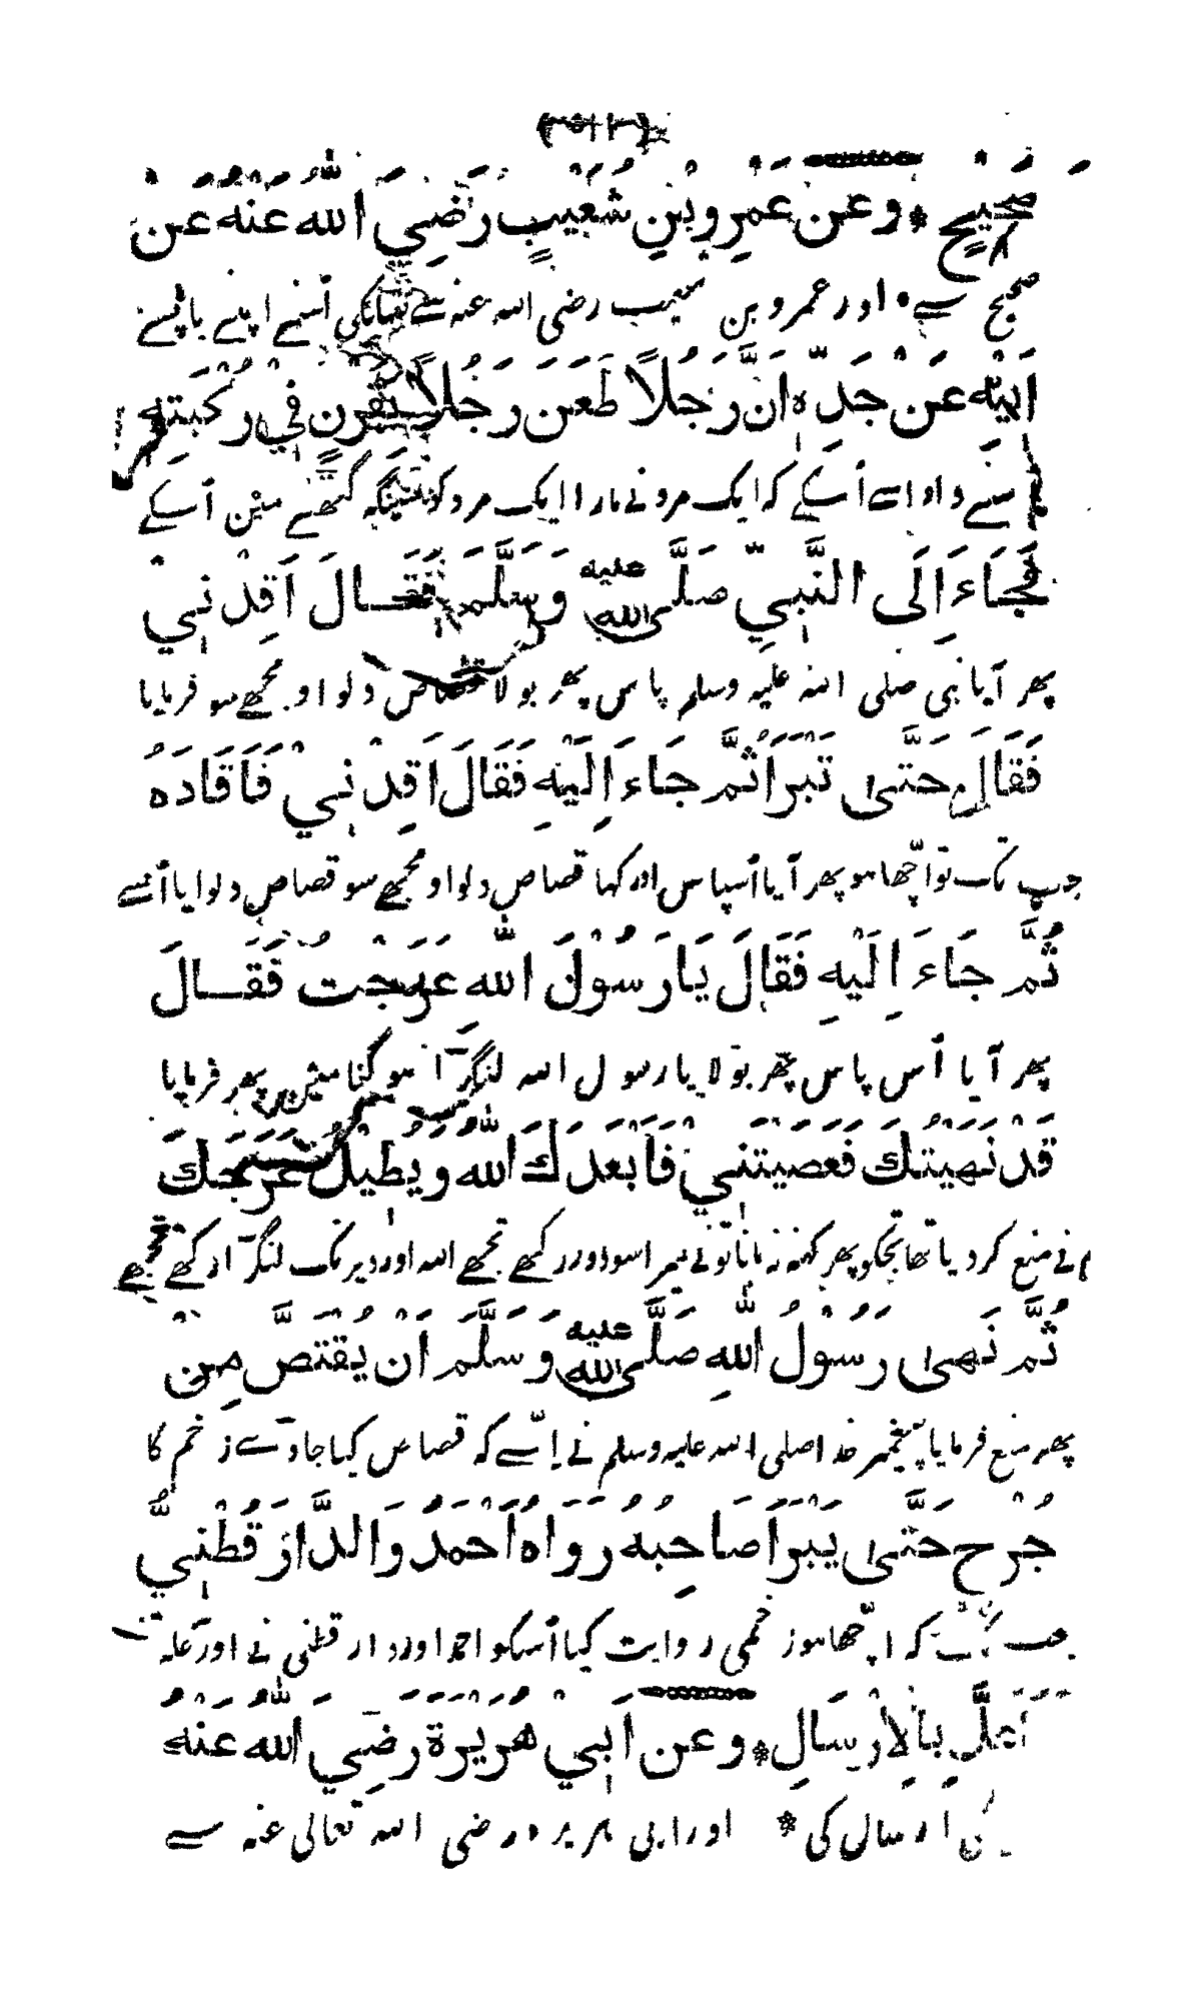 صَحِيْحٍ * وَعَنْ عَمْرِو بْنِ شُعَيْبٍ رَضِيَ اللّٰهُ عَنْهُ عَنْ
صحیح ہے * اور عمرو بن شعیب رضی اللہ عنہ سے اُسنے اپنے باپسے
اَبِيْهِ عَنْ جَدِّهٖ اَنَّ رَجُلًا طَعَنَ رَجُلًا بِقَرْنٍ فِيْ رُكْبَتِهٖ
اُسنے دادا سے اُسکے کہ ایک مرد نے مارا ایک مرد کو سینگہ گھٹنے میں اُسکے
فَجَاءَ اِلَى النَّبِيِّ صَلَّى اللّٰه عليه وَسَلَّمَ فَقَـالَ اَقِدْنِيْ
پھر آیا نبی صلی اللہ علیہ وسلم پاس پھر بولا قصاص دلواو مجھے سو فرمایا
فَقَالَ حَتّٰى تَبْرَأَ ثُمَّ جَاءَ اِلَيْهِ فَقَالَ اَقِدْنِيْ فَاَقَادَهُ
جب تک تو اچّھا ہو پھر آیا اُسپاس اور کہا قصاص دلواو مجھے سو قصاص دلوایا اُسے
ثُمَّ جَاءَ اِلَيْهِ فَقَالَ يَا رَسُوْلَ اللّٰه عَرَجْتُ فَقَـالَ
پھر آیا اُس پاس پھر بولا یا رسول اللہ لنگڑا ہو گیا میں پھر فرمایا
قَدْ نَهَيْتُكَ فَعَصَيْتَنِيْ فَاَبْعَدَكَ اللّٰهُ وَيُطِيْلُ عَرَجَكَ
نے منع کر دیا تھا تجکو پھر کہنہ نہ مانا تونے میرا سو دور رکھے تجھے اللہ اور دیر تک لنگڑا رکھے تجھے
ثُمَّ نَهٰى رَسُوْلُ اللّٰهِ صَلَّى اللّٰه عليه وَسَلَّمَ اَنْ يُقْتَصَّ مِنْ
پھر منع فرمایا پیغیمبر خدا صلی اللہ علیہ وسلم نے اِسّے کہ قصاص کیا جاوے زخم کا
جُرْحٍ حَتّٰى يَبْرَأَ صَاحِبُهُ رَوَاهُ اَحْمَدُ وَالدَّارَقُطْنِيُّ
جب تک کہ اچّھا ہو زخمی روایت کیا اُسکو احمد اور دار قطنی نے اور علت
اُعِلَّ بِالْاِرْسَالِ * وَعَنْ اَبِيْ هُرَيْرَةَ رَضِيَ اللّٰهُ عَنْهُ
ارسال کی * اور ابی ہریرہ رضی اللہ تعالی عنہ سے